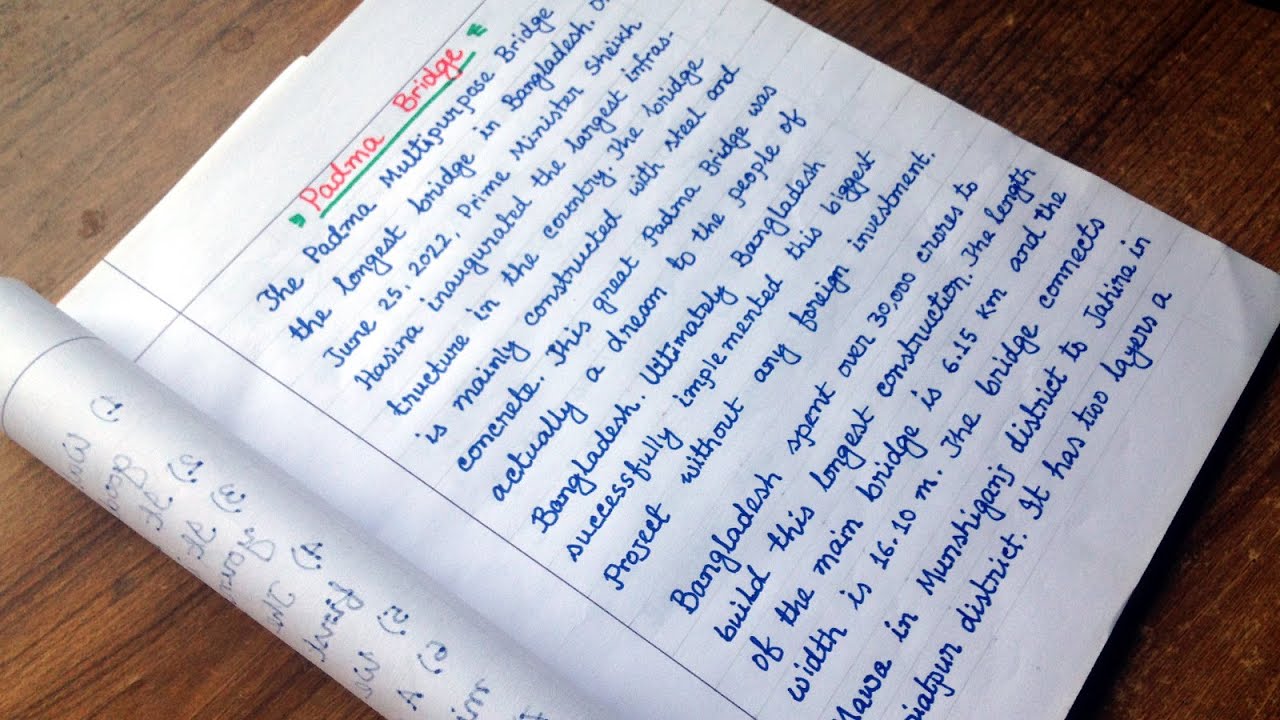 Padma Bridge
The Padma Multipurpose Bridge
the longest bridge in Bangladesh. On
June 25, 2022, Prime Minister Sheikh
Hasina inaugurated the largest infras-
tructure in the country. The bridge
is mainly constructed with steel and
concrete. This great Padma Bridge was
actually a dream to the people of
Bangladesh. Ultimately Bangladesh
successfully implemented this biggest
project without any foreign investment.
Bangladesh spent over 30,000 crores to
build this longest construction. The length
of the main bridge is 6.15 km and the
width is 16.10 m. The bridge connects
Mawa in Munshiganj district to Jahira in
district. It has two layers a